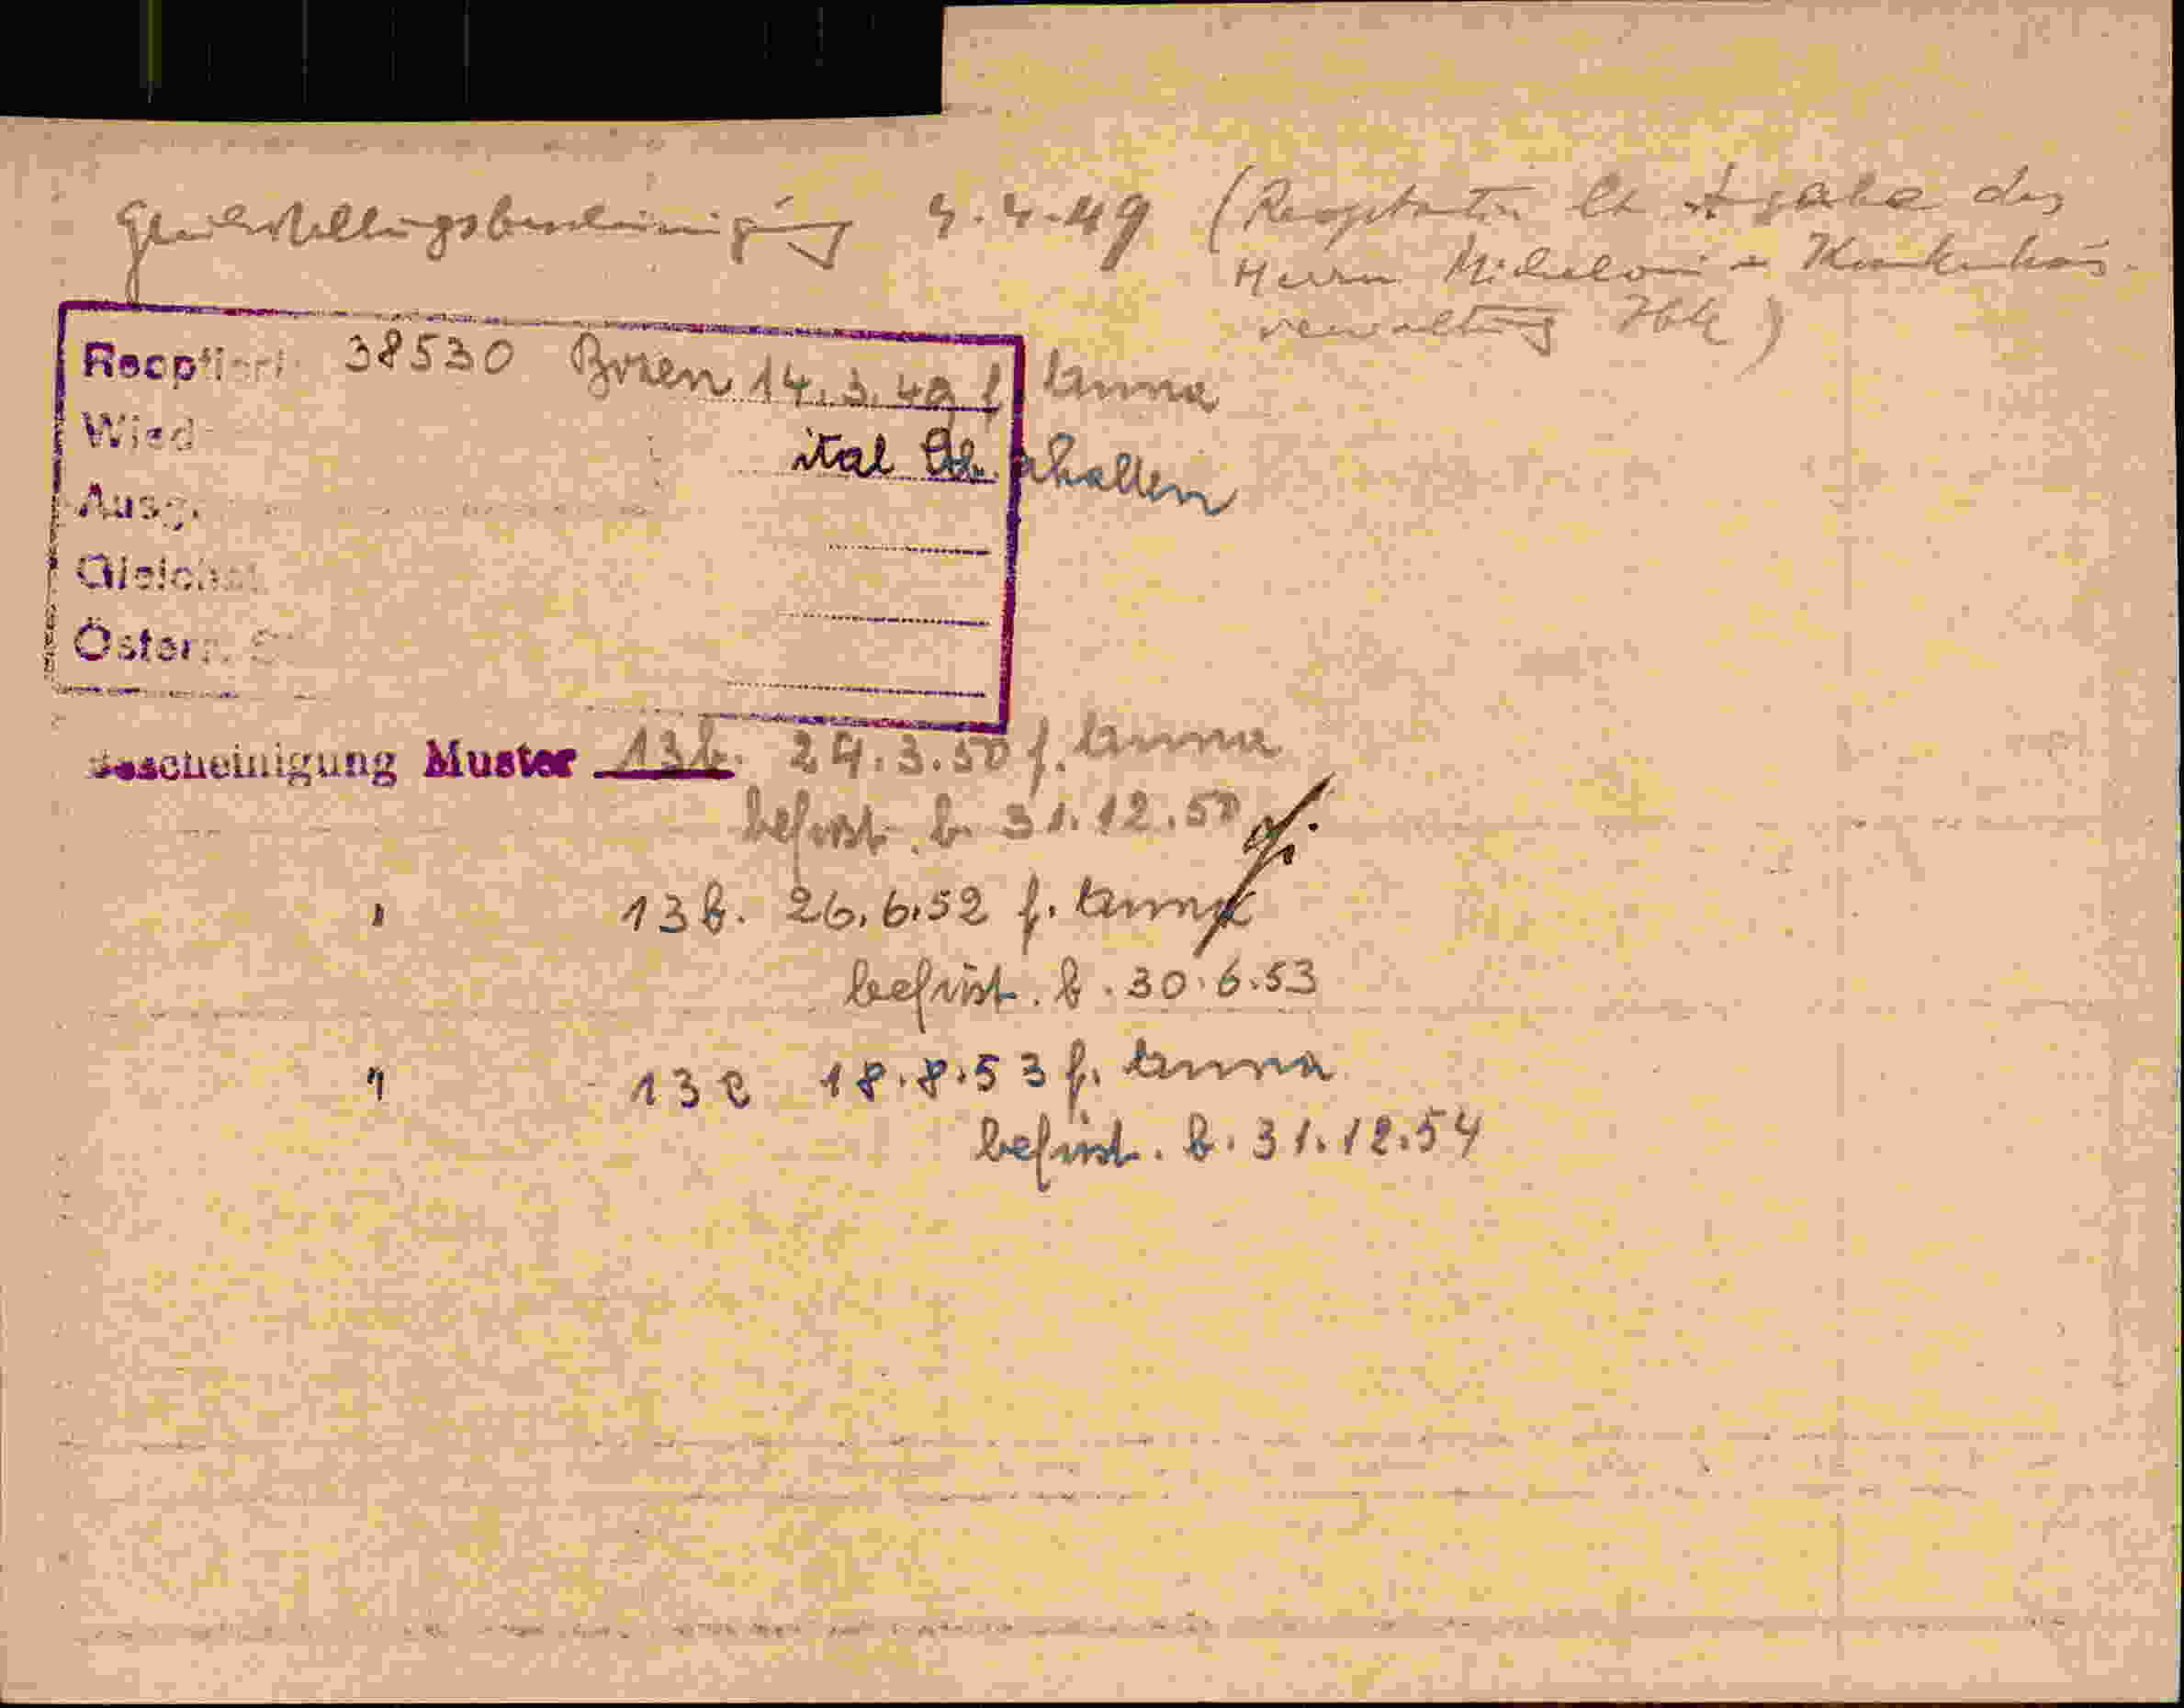 Gleichstellungsbescheinigung 4.4.49 (Reoptantin lt. Angabe des
Herrn Micheloni Krankenhaus-
verwaltung Ibk)
Reoptiert 38530 Bozen 14.3.49 f. Anna
Wied
ital Stb. erhalten
Ausg.
Gleichst.
Österr. S
Bescheinigung Muster 13b. 24.3.50 f. Anna
befrist. b. 31.12.50
" 13b. 26.6.52 f. Anna
befrist. b. 30.6.53
" 13c 18.8.53 f. Anna
befrist. b. 31.12.54